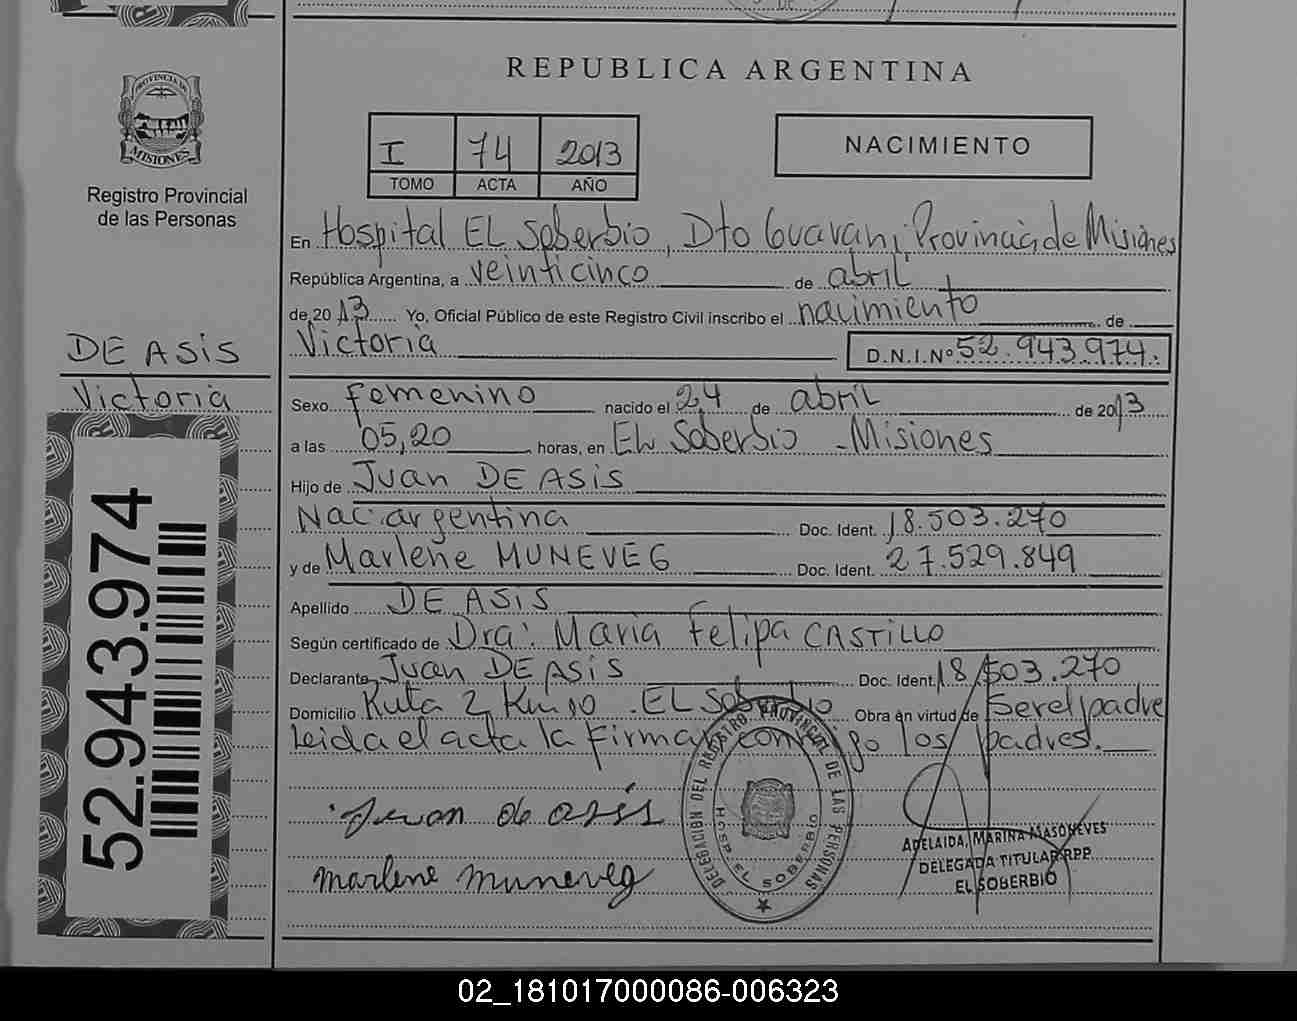 REPUBLICA ARGENTINA
PROVINCIA DE
MISIONES
Registro Provincial
de las Personas
I 74 2013
TOMO ACTA AÑO
NACIMIENTO
En Hospital EL Soberbio, Dto Guarani Provincia de Misiones
República Argentina, a veinticinco de abril
de 2013 Yo, Oficial Público de este Registro Civil inscribo el nacimiento de
Victoria D.N.I.Nº 52.943.974.
DE ASIS
Victoria
52.943.974
Sexo femenino nacido el 24 de abril de 2013
a las 05,20 horas, en EL Soberbio - Misiones
Hijo de Juan DE ASIS
Nac. argentina Doc. Ident. 18.503.270
y de Marlene MUNEVEG Doc. Ident. 27.529.849
Apellido DE ASIS
Según certificado de Dra: Maria Felipa CASTILLO
Declarante Juan DE ASIS Doc. Ident. 18.503.270
Domicilio Ruta 2 Km 10 . EL Soberbio Obra en virtud de Ser el padre
Leida el acta la firman conmigo los padres.
Juan de asís
marlene muneveg
DELEGACIÓN DEL REGISTRO PROVINCIAL DE LAS PERSONAS
HOSP. EL SOBERBIO
ADELAIDA, MARINA MASONEVES
DELEGADA TITULAR RPP
EL SOBERBIO
02_181017000086-006323